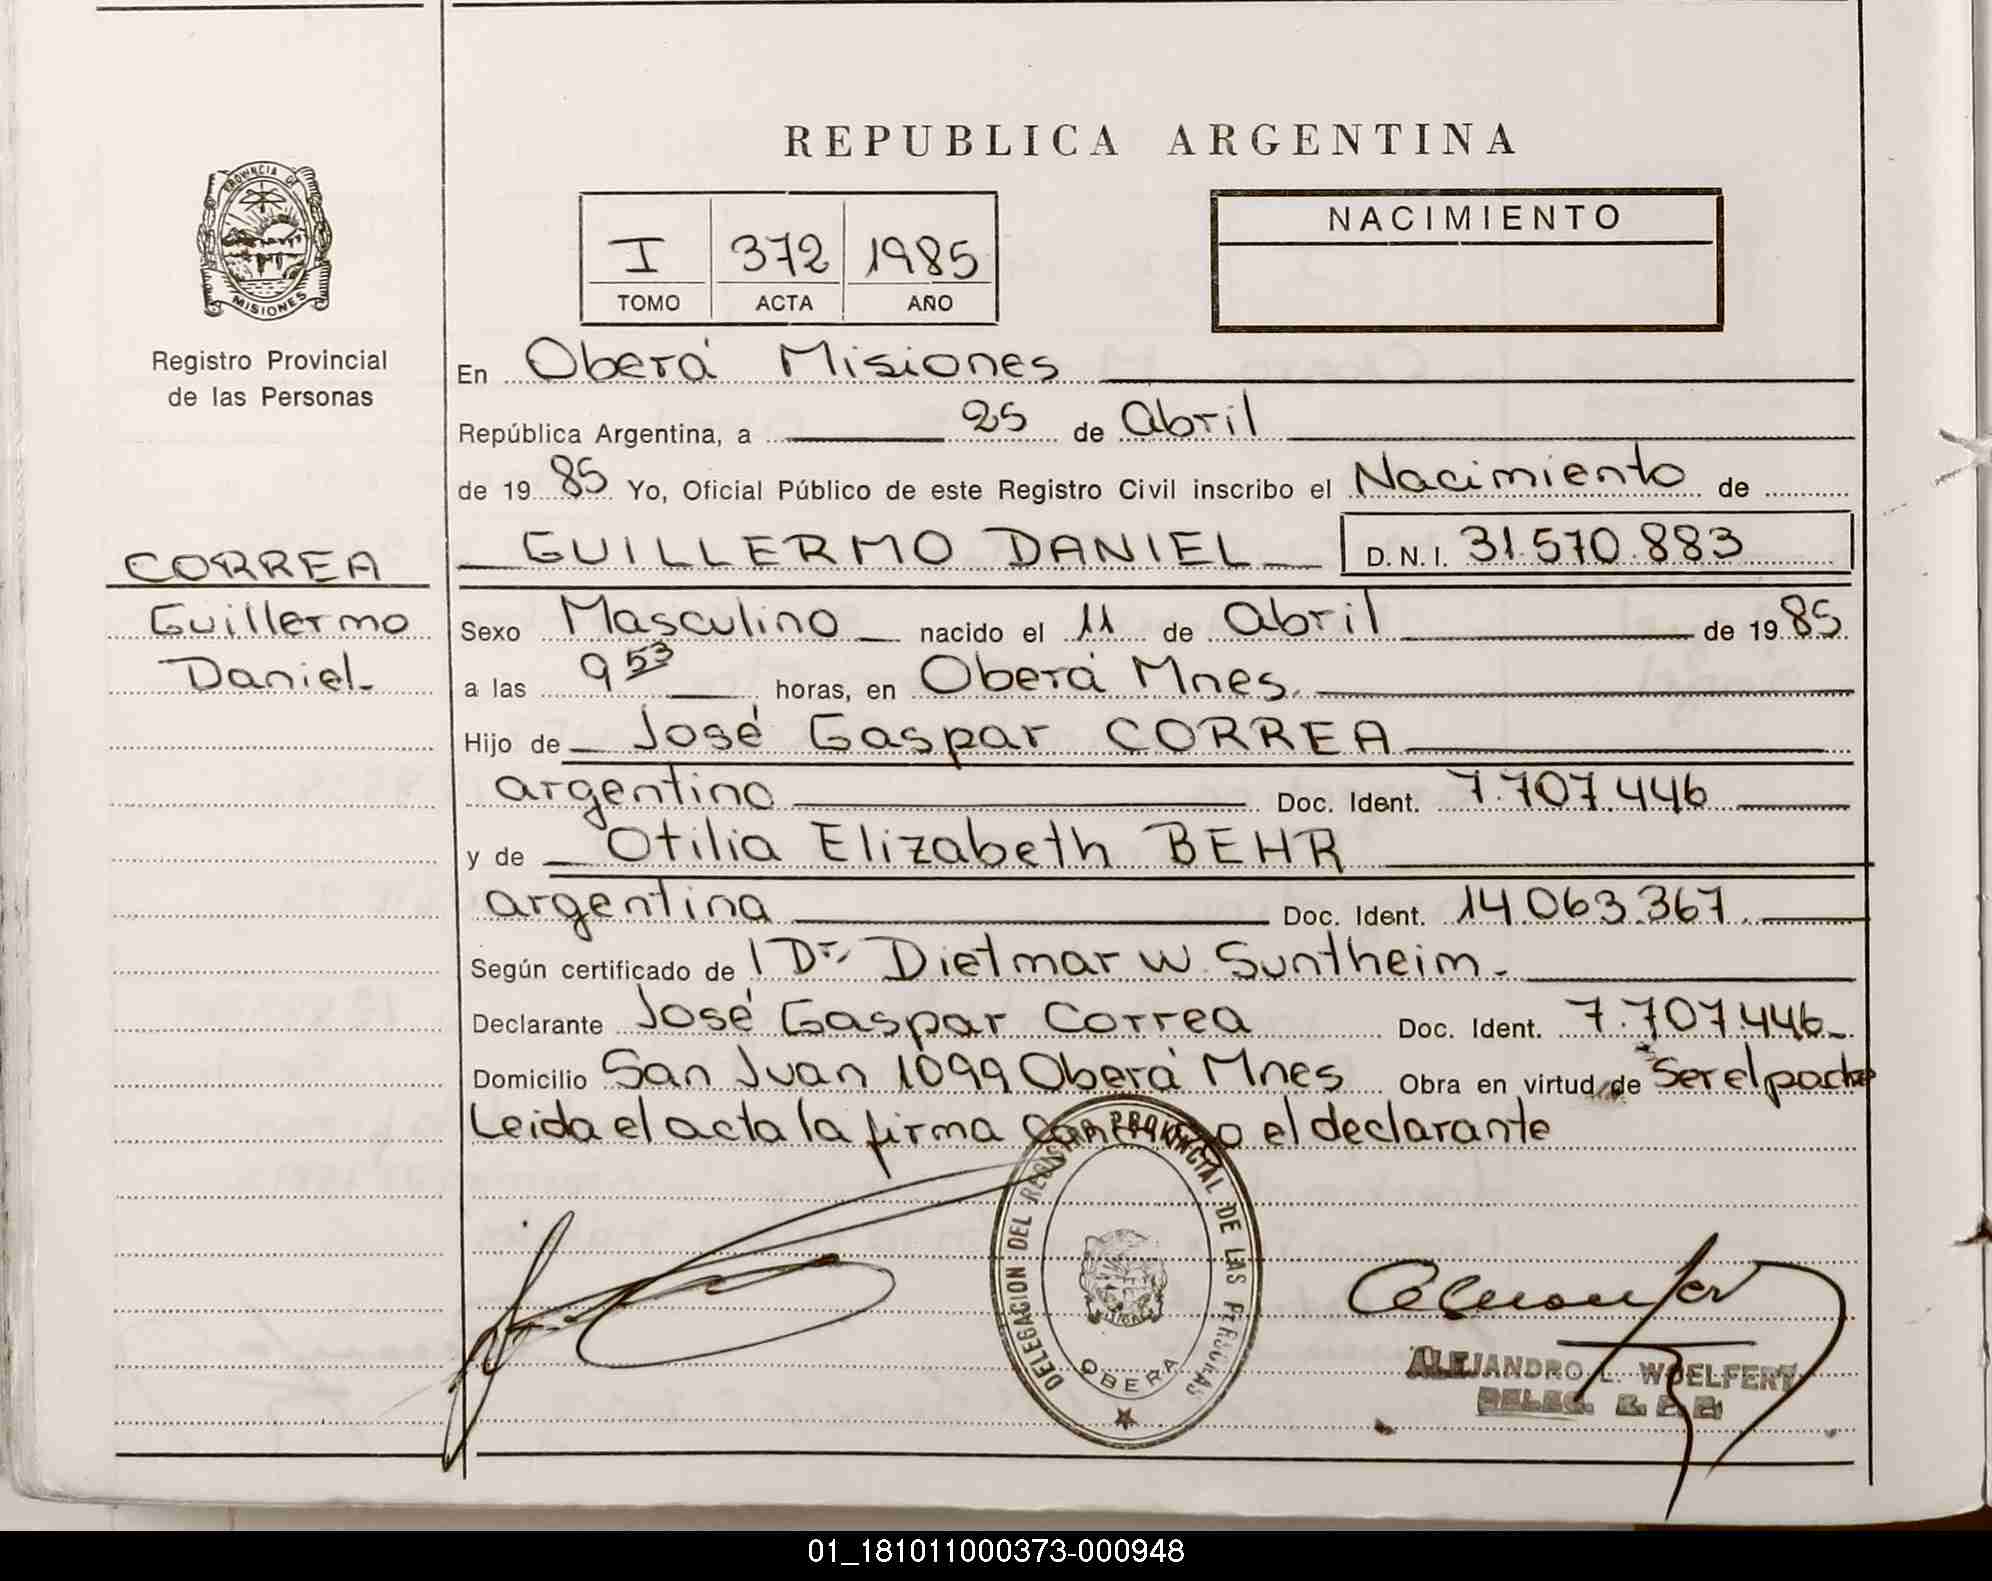 REPUBLICA ARGENTINA
PROVINCIA DE
MISIONES
Registro Provincial
de las Personas
I 372 1985
TOMO ACTA AÑO
NACIMIENTO
En Oberá Misiones
República Argentina, a 25 de Abril
de 1985 Yo, Oficial Público de este Registro Civil inscribo el Nacimiento de
GUILLERMO DANIEL D.N.I. 31.570.883
CORREA
Guillermo
Daniel
Sexo Masculino nacido el 11 de Abril de 1985
a las 9 53 horas, en Oberá Mnes.
Hijo de José Gaspar CORREA
argentino Doc. Ident. 7.707.446
y de Otilia Elizabeth BEHR
argentina Doc. Ident. 14.063.367
Según certificado de l Dr. Dietmar W. Suntheim.
Declarante José Gaspar Correa Doc. Ident. 7.707.446
Domicilio San Juan 1099 Oberá Mnes Obra en virtud de Ser el padre
Leida el acta la firma conmigo el declarante
DELEGACION DEL REGISTRO PROVINCIAL DE LAS PERSONAS
OBERA
ALEJANDRO L. WOELFERT
DELEG. R. P. P.
01_181011000373-000948